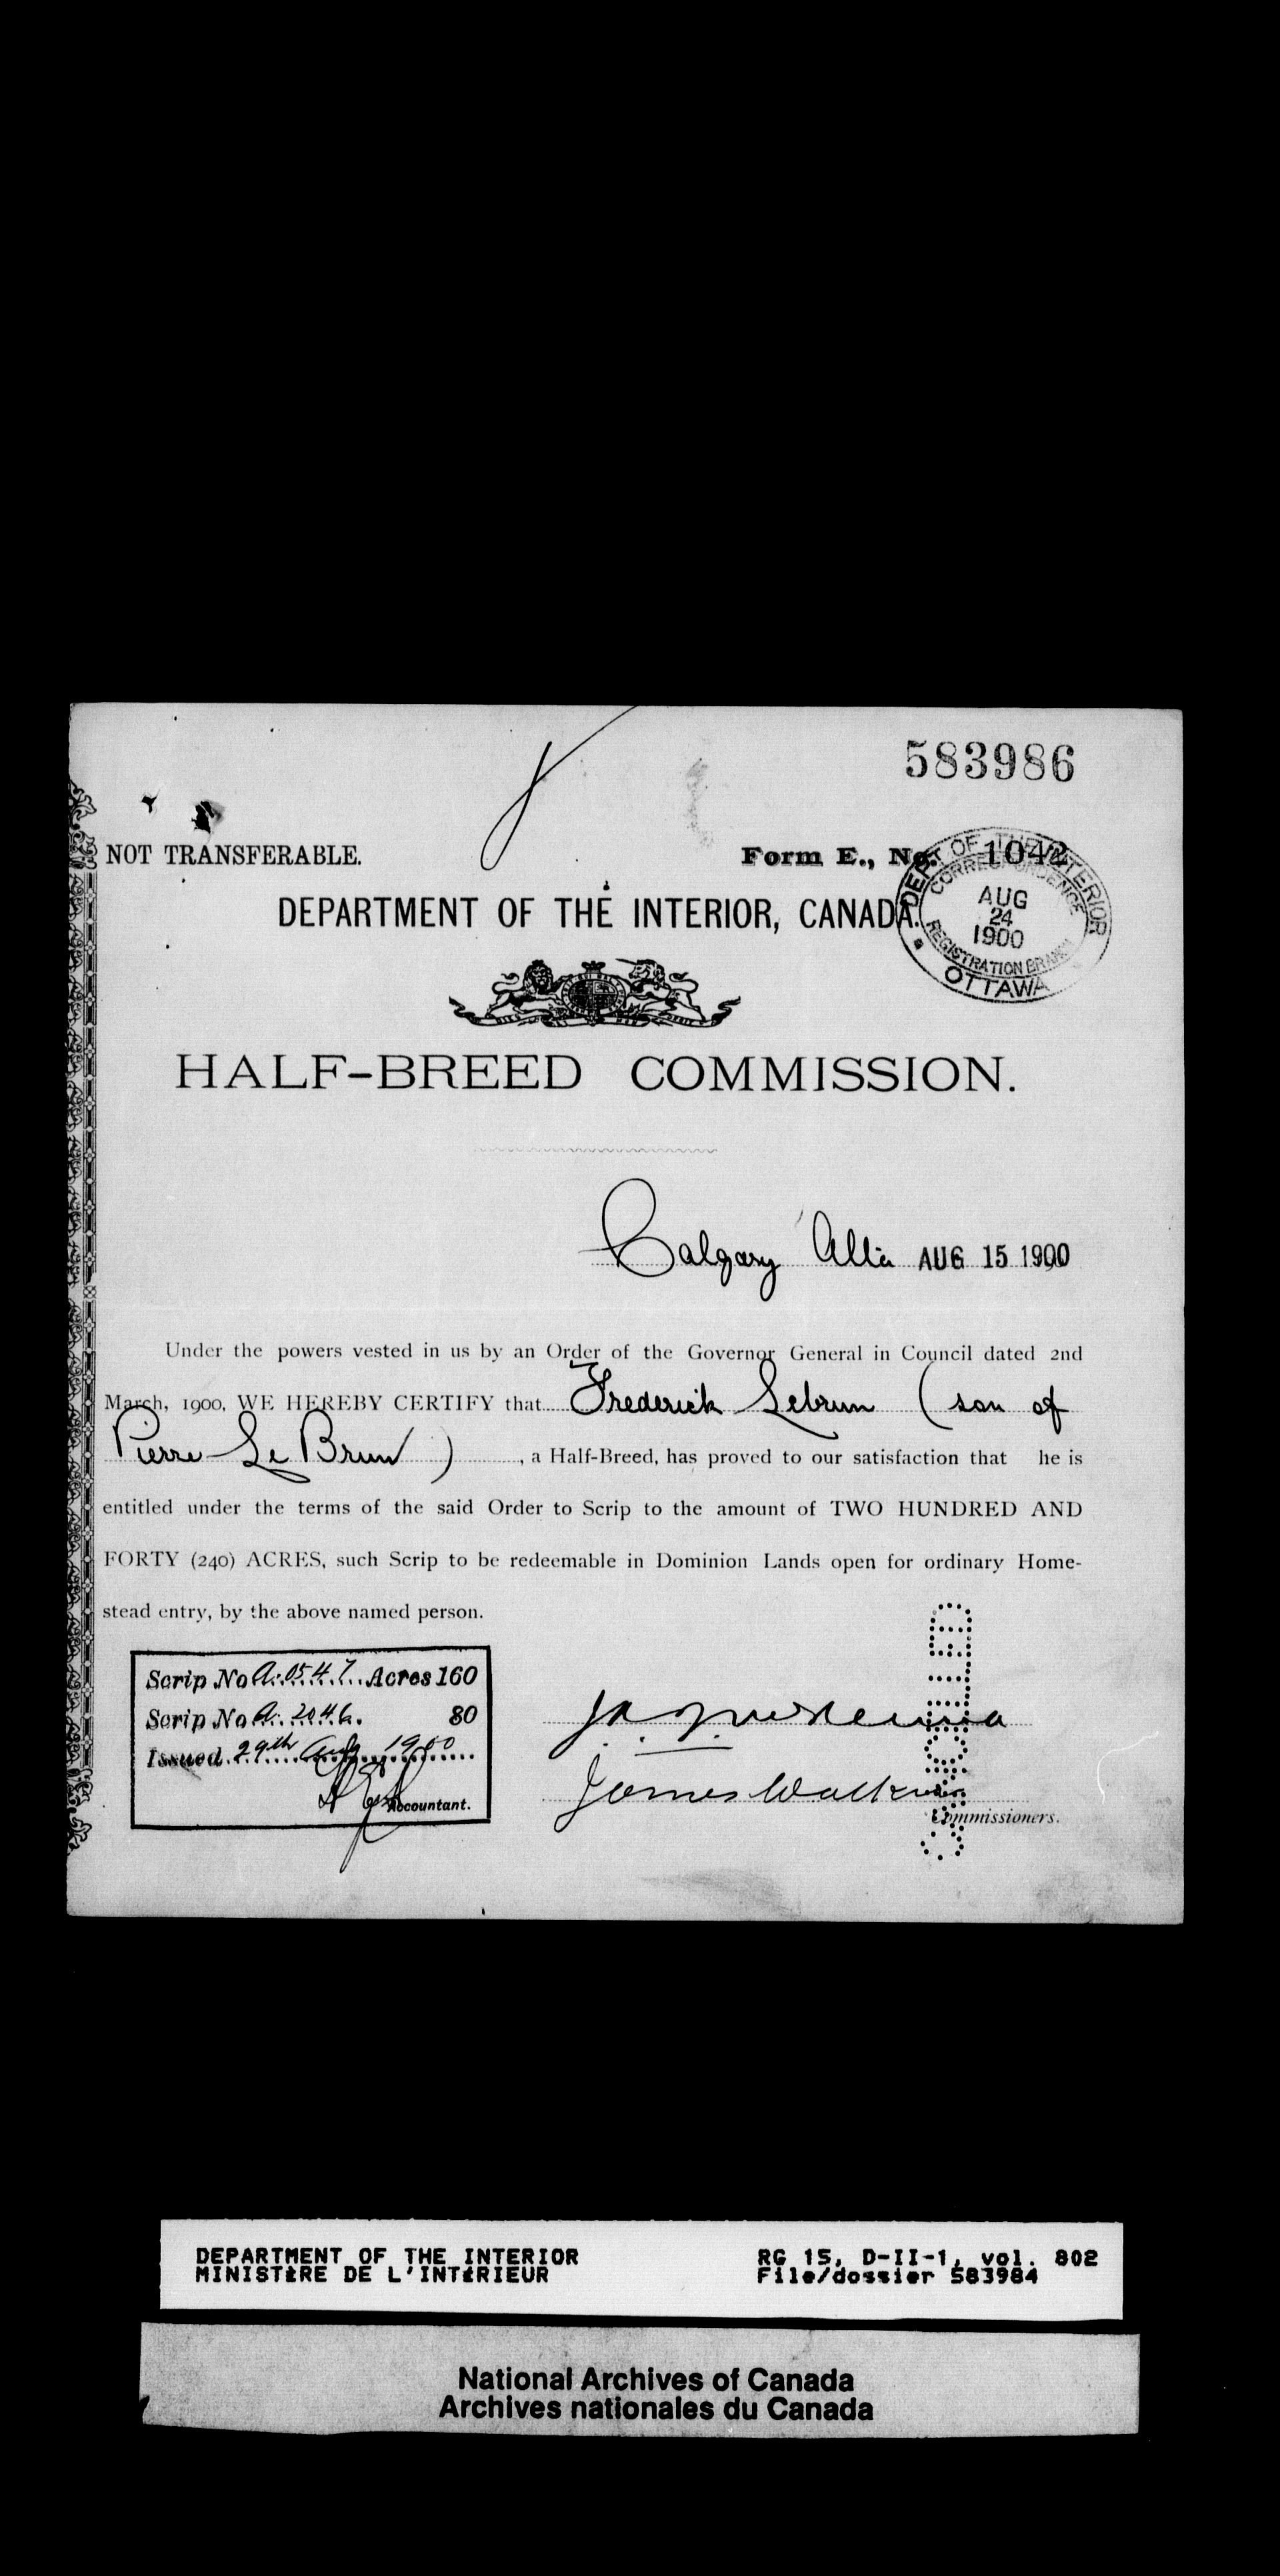 583986
NOT TRANSFERABLE.
Form E., No. 1042
DEPT OF THE INTERIOR
CORRESPONDENCE
AUG
24
1900
REGISTRATION BRANCH
OTTAWA
DEPARTMENT OF THE INTERIOR, CANADA.
HALF-BREED COMMISSION.
Calgary Alta AUG 15 1900
Under the powers vested in us by an Order of the Governor General in Council dated 2nd
March, 1900, WE HEREBY CERTIFY that Frederick Lebrun (son of
Pierre Le Brun), a Half-Breed, has proved to our satisfaction that he is
entitled under the terms of the said Order to Scrip to the amount of TWO HUNDRED AND
FORTY (240) ACRES, such Scrip to be redeemable in Dominion Lands open for ordinary Home-
stead entry, by the above named person.
Scrip No A. 0547 Acres 160
Scrip No A. 2046. 80
Issued 29th Aug 1900
Accountant.
J.A.J. McKenna
James Walker
Commissioners.
DEPARTMENT OF THE INTERIOR
MINISTÈRE DE L'INTÉRIEUR
RG 15, D-II-1, vol. 802
File/dossier 583984
National Archives of Canada
Archives nationales du Canada